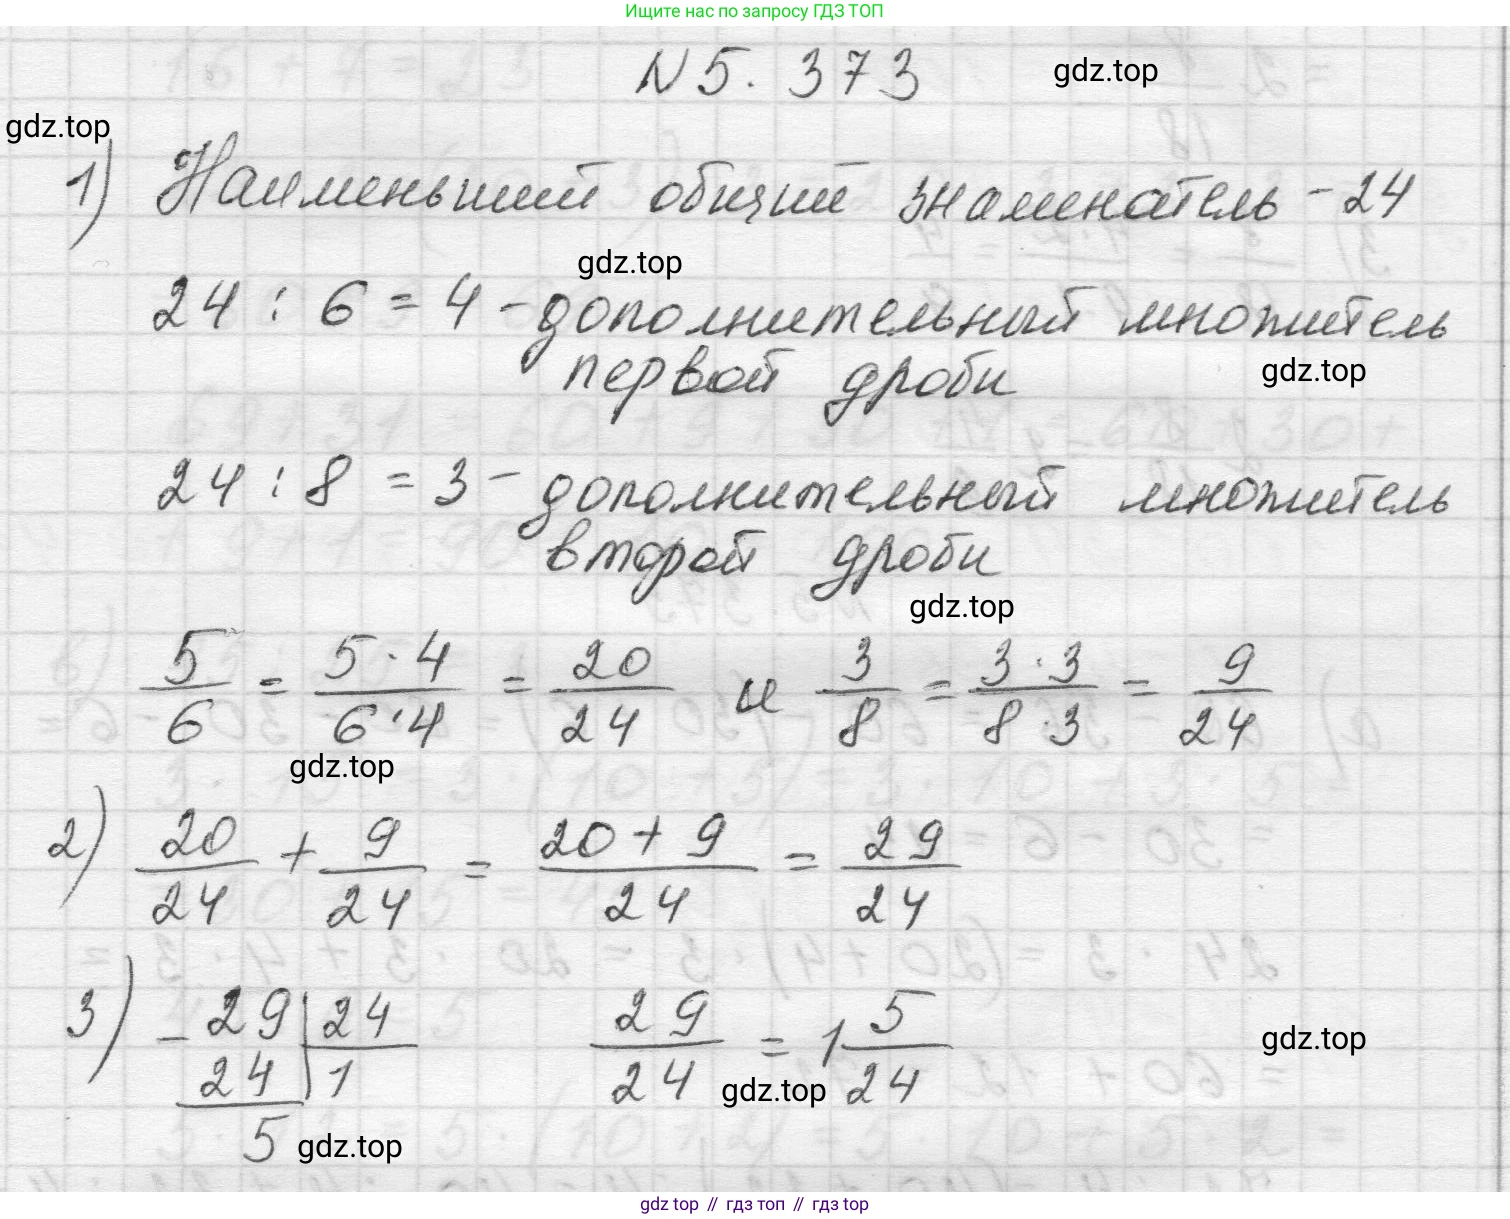 Ищите нас по запросу ГДЗ ТОП
N 5. 373
gdz.top
gdz.top
1) Наименьший общий знаменатель - 24
gdz.top
24 : 6 = 4 - дополнительный множитель
первой дроби
gdz.top
24 : 8 = 3 - дополнительный множитель
второй дроби
gdz.top
5/6 = 5·4/6·4 = 20/24 и 3/8 = 3·3/8·3 = 9/24
gdz.top
2) 20/24 + 9/24 = 20+9/24 = 29/24
3) - 29 | 24
24 | 1
5
29/24 = 1 5/24
gdz.top
gdz.top
gdz.top
gdz top // гдз топ // gdz top